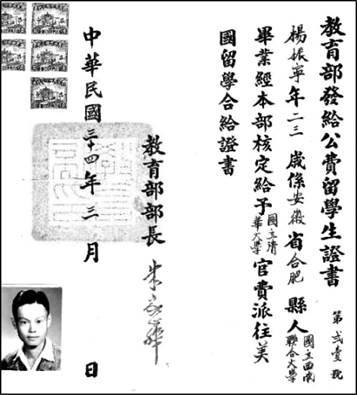 教育部發給公費留學生證書
第貳壹號
楊振寧年二三歲係安徽省合肥縣人
國立西南聯合大學
畢業經本部核定給予國立清華大學官費派往美
國留學合給證書
教育部部長朱家驊
中華民國三十四年三月 日